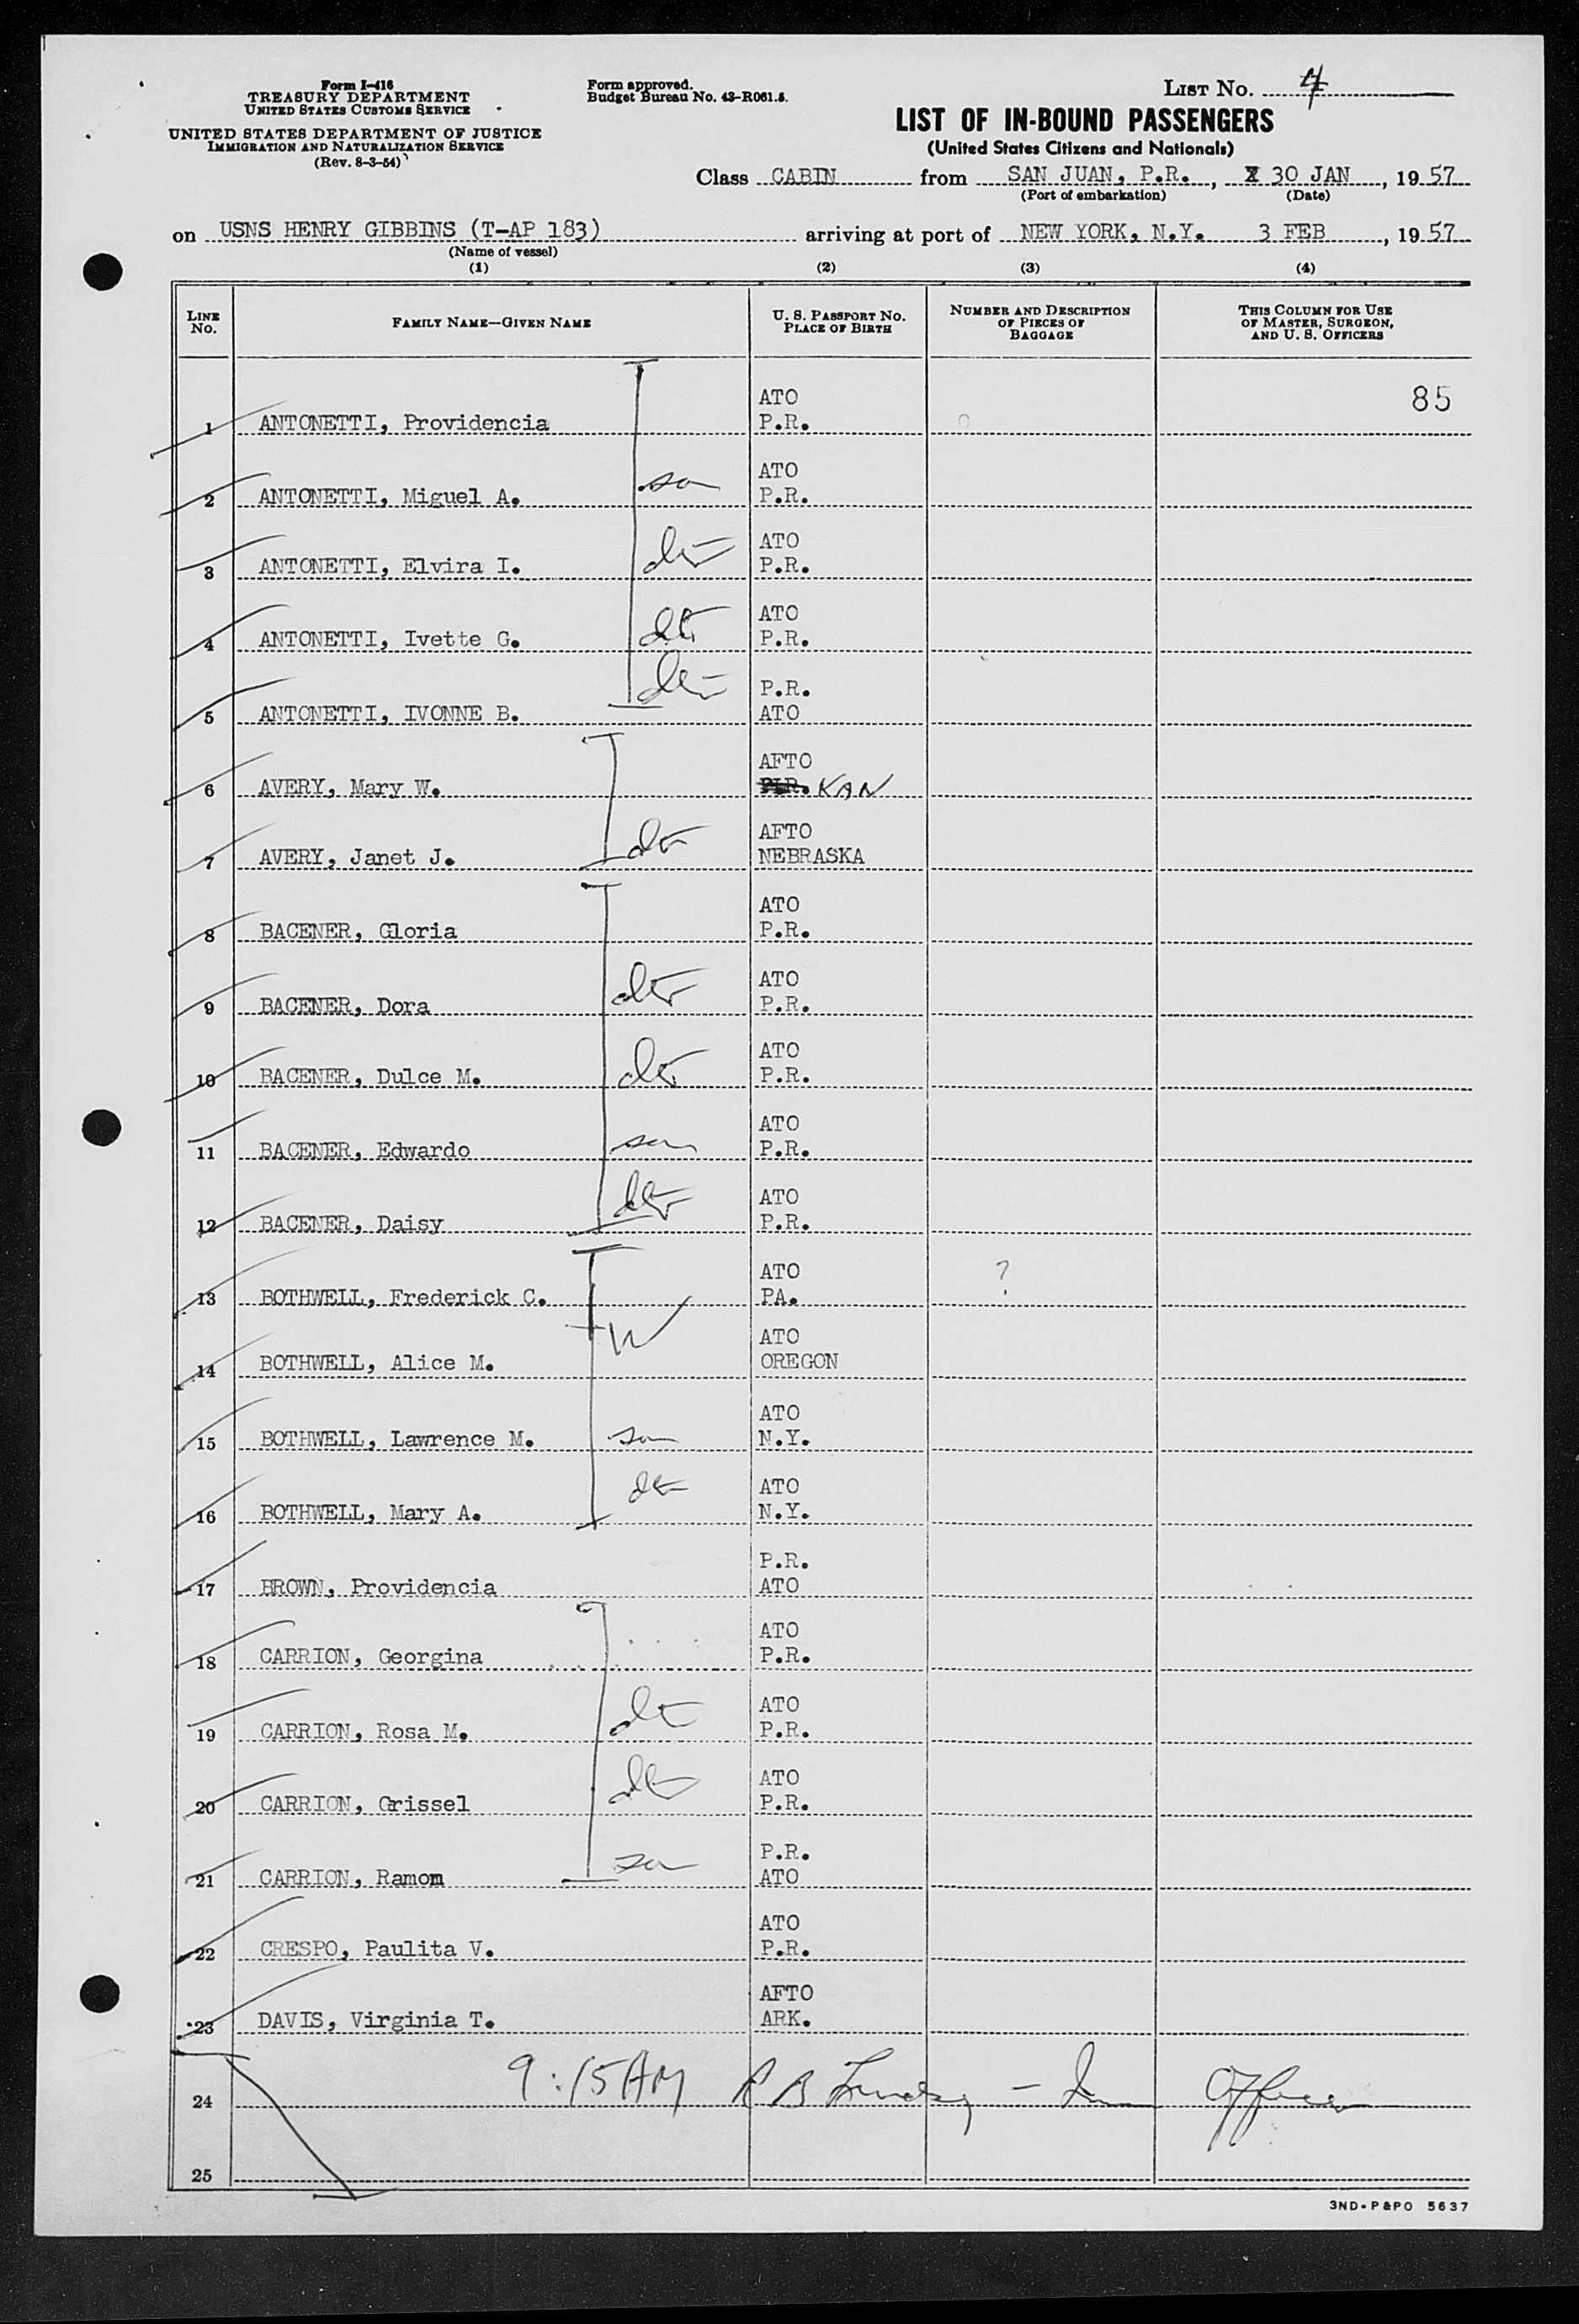 Form I-416
TREASURY DEPARTMENT
UNITED STATES CUSTOMS SERVICE
UNITED STATES DEPARTMENT OF JUSTICE
IMMIGRATION AND NATURALIZATION SERVICE
(Rev. 8-3-54)
Form approved.
Budget Bureau No. 43-R061.5.
LIST No. 4
LIST OF IN-BOUND PASSENGERS
(United States Citizens and Nationals)
Class CABIN from SAN JUAN, P.R., 30 JAN, 1957
(Port of embarkation) (Date)
on USNS HENRY GIBBINS (T-AP 183) arriving at port of NEW YORK, N.Y. 3 FEB, 1957
(Name of vessel)
(1) (2) (3) (4)
LINE No. FAMILY NAME—GIVEN NAME U. S. PASSPORT No. PLACE OF BIRTH NUMBER AND DESCRIPTION OF PIECES OF BAGGAGE THIS COLUMN FOR USE OF MASTER, SURGEON, AND U. S. OFFICERS
ATO 85
1 ANTONETTI, Providencia P.R.
ATO
2 ANTONETTI, Miguel A. son P.R.
ATO
3 ANTONETTI, Elvira I. dtr P.R.
ATO
4 ANTONETTI, Ivette G. dtr P.R.
P.R.
5 ANTONETTI, IVONNE B. dtr ATO
AFTO
6 AVERY, Mary W. P.R. KAN
AFTO
7 AVERY, Janet J. dtr NEBRASKA
ATO
8 BACENER, Gloria P.R.
ATO
9 BACENER, Dora dtr P.R.
ATO
10 BACENER, Dulce M. dtr P.R.
ATO
11 BACENER, Edwardo son P.R.
ATO
12 BACENER, Daisy dtr P.R.
ATO ?
13 BOTHWELL, Frederick C. PA.
ATO
14 BOTHWELL, Alice M. W OREGON
ATO
15 BOTHWELL, Lawrence M. son N.Y.
ATO
16 BOTHWELL, Mary A. dtr N.Y.
P.R.
17 BROWN, Providencia ATO
ATO
18 CARRION, Georgina P.R.
ATO
19 CARRION, Rosa M. dtr P.R.
ATO
20 CARRION, Grissel dtr P.R.
P.R.
21 CARRION, Ramom son ATO
ATO
22 CRESPO, Paulita V. P.R.
AFTO
23 DAVIS, Virginia T. ARK.
24 9:15AM R B - Im Officer
25
3ND-P&PO 5637